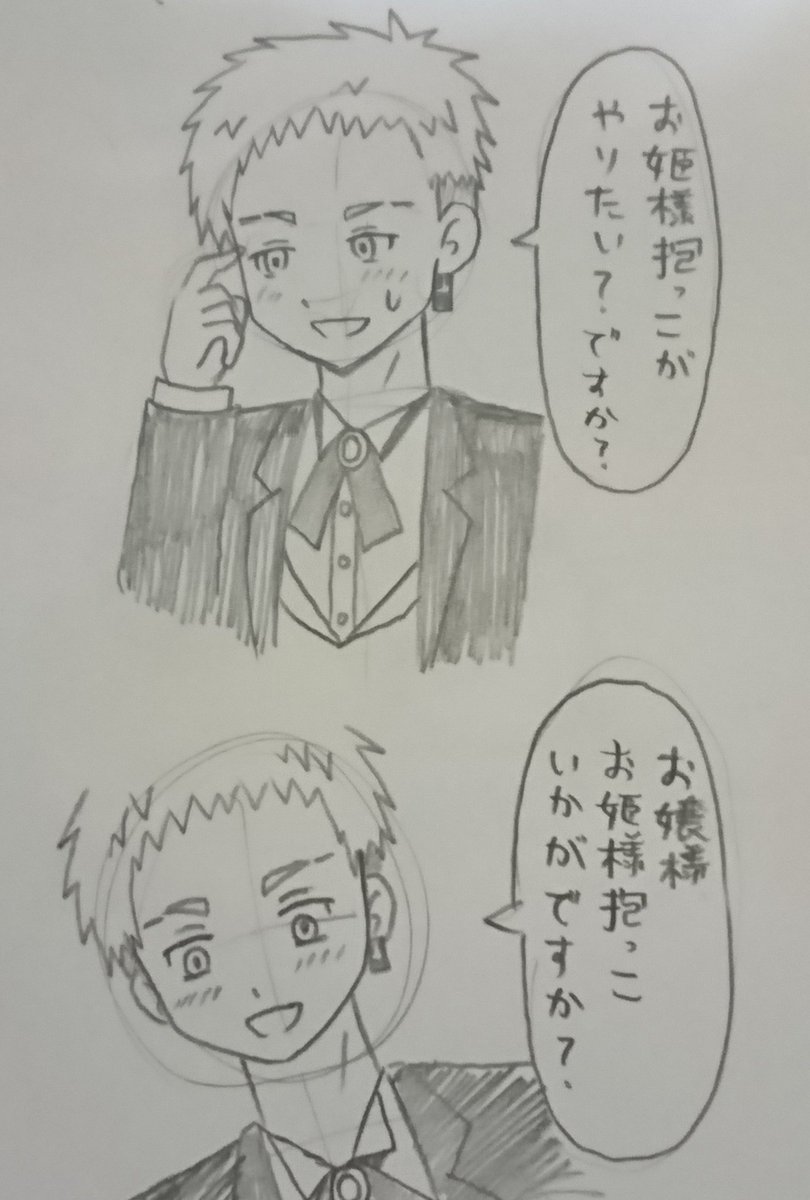 お姫様抱っこが
やりたい?ですか?
お嬢様
お姫様抱っこ
いかがですか?